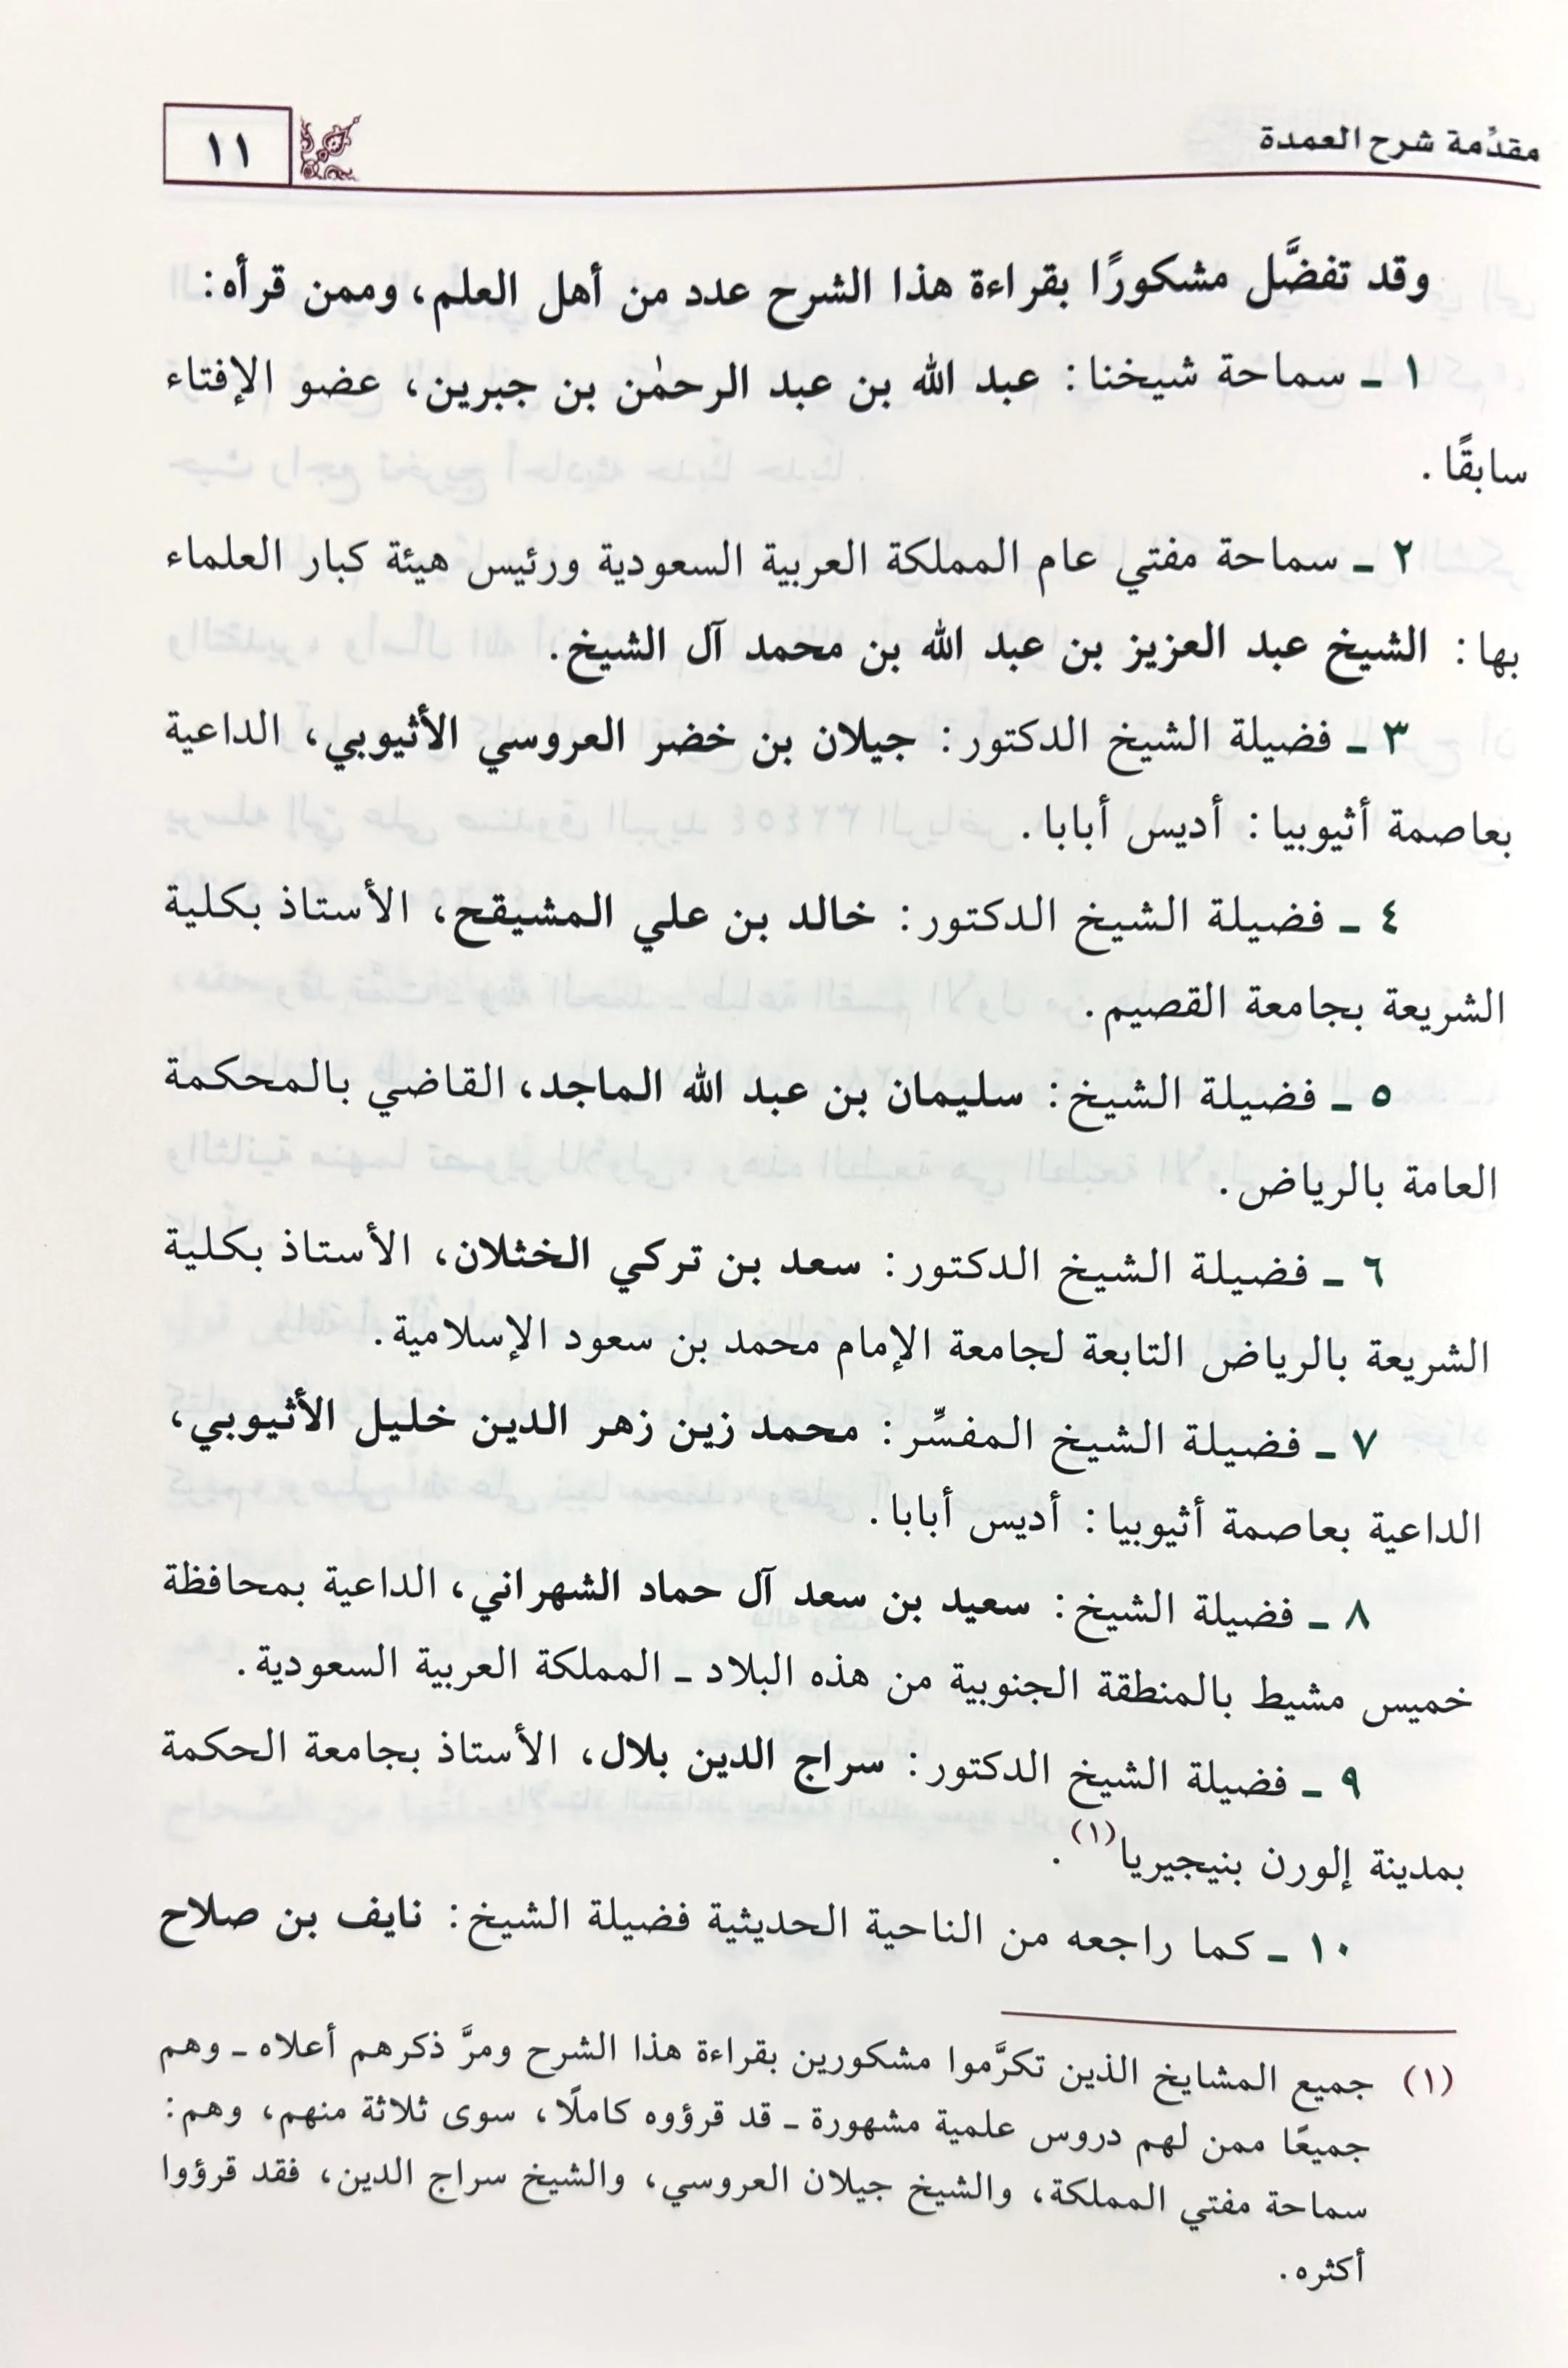 مقدِّمة شرح العمدة
١١
وقد تفضَّل مشكورًا بقراءة هذا الشرح عدد من أهل العلم، وممن قرأه:
١ ـ سماحة شيخنا: عبد الله بن عبد الرحمٰن بن جبرين، عضو الإفتاء
سابقًا.
٢ ـ سماحة مفتي عام المملكة العربية السعودية ورئيس هيئة كبار العلماء
بها: الشيخ عبد العزيز بن عبد الله بن محمد آل الشيخ.
٣ ـ فضيلة الشيخ الدكتور: جيلان بن خضر العروسي الأثيوبي، الداعية
بعاصمة أثيوبيا: أديس أبابا.
٤ ـ فضيلة الشيخ الدكتور: خالد بن علي المشيقح، الأستاذ بكلية
الشريعة بجامعة القصيم.
٥ ـ فضيلة الشيخ: سليمان بن عبد الله الماجد، القاضي بالمحكمة
العامة بالرياض.
٦ ـ فضيلة الشيخ الدكتور: سعد بن تركي الخثلان، الأستاذ بكلية
الشريعة بالرياض التابعة لجامعة الإمام محمد بن سعود الإسلامية.
٧ ـ فضيلة الشيخ المفسِّر: محمد زين زهر الدين خليل الأثيوبي،
الداعية بعاصمة أثيوبيا: أديس أبابا.
٨ ـ فضيلة الشيخ: سعيد بن سعد آل حماد الشهراني، الداعية بمحافظة
خميس مشيط بالمنطقة الجنوبية من هذه البلاد ـ المملكة العربية السعودية.
٩ ـ فضيلة الشيخ الدكتور: سراج الدين بلال، الأستاذ بجامعة الحكمة
بمدينة إلورن بنيجيريا(١).
١٠ ـ كما راجعه من الناحية الحديثية فضيلة الشيخ: نايف بن صلاح
(١) جميع المشايخ الذين تكرَّموا مشكورين بقراءة هذا الشرح ومرَّ ذكرهم أعلاه ـ وهم
جميعًا ممن لهم دروس علمية مشهورة ـ قد قرؤوه كاملًا، سوى ثلاثة منهم، وهم:
سماحة مفتي المملكة، والشيخ جيلان العروسي، والشيخ سراج الدين، فقد قرؤوا
أكثره.